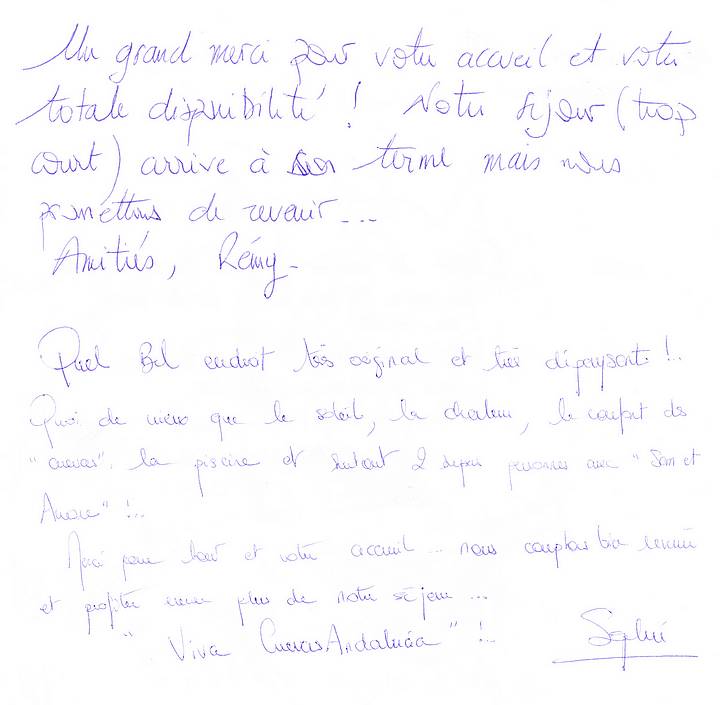 Un grand merci pour votre accueil et votre
totale disponibilité ! Notre séjour (trop
court) arrive à son terme mais nous
promettons de revenir ...
Amitiés, Rémy -
Quel Bel endroit très original et très dépaysant !..
Quoi de mieux que le soleil, la chaleur, le confort des
"cuevas", la piscine et surtout 2 supers personnes avec " Sam et
Aurore" !..
Merci pour tout et votre accueil ... nous comptons bien revenir
et profiter encore plus de notre séjour ...
" Viva Cuevas Andalucia " !.. Sophie